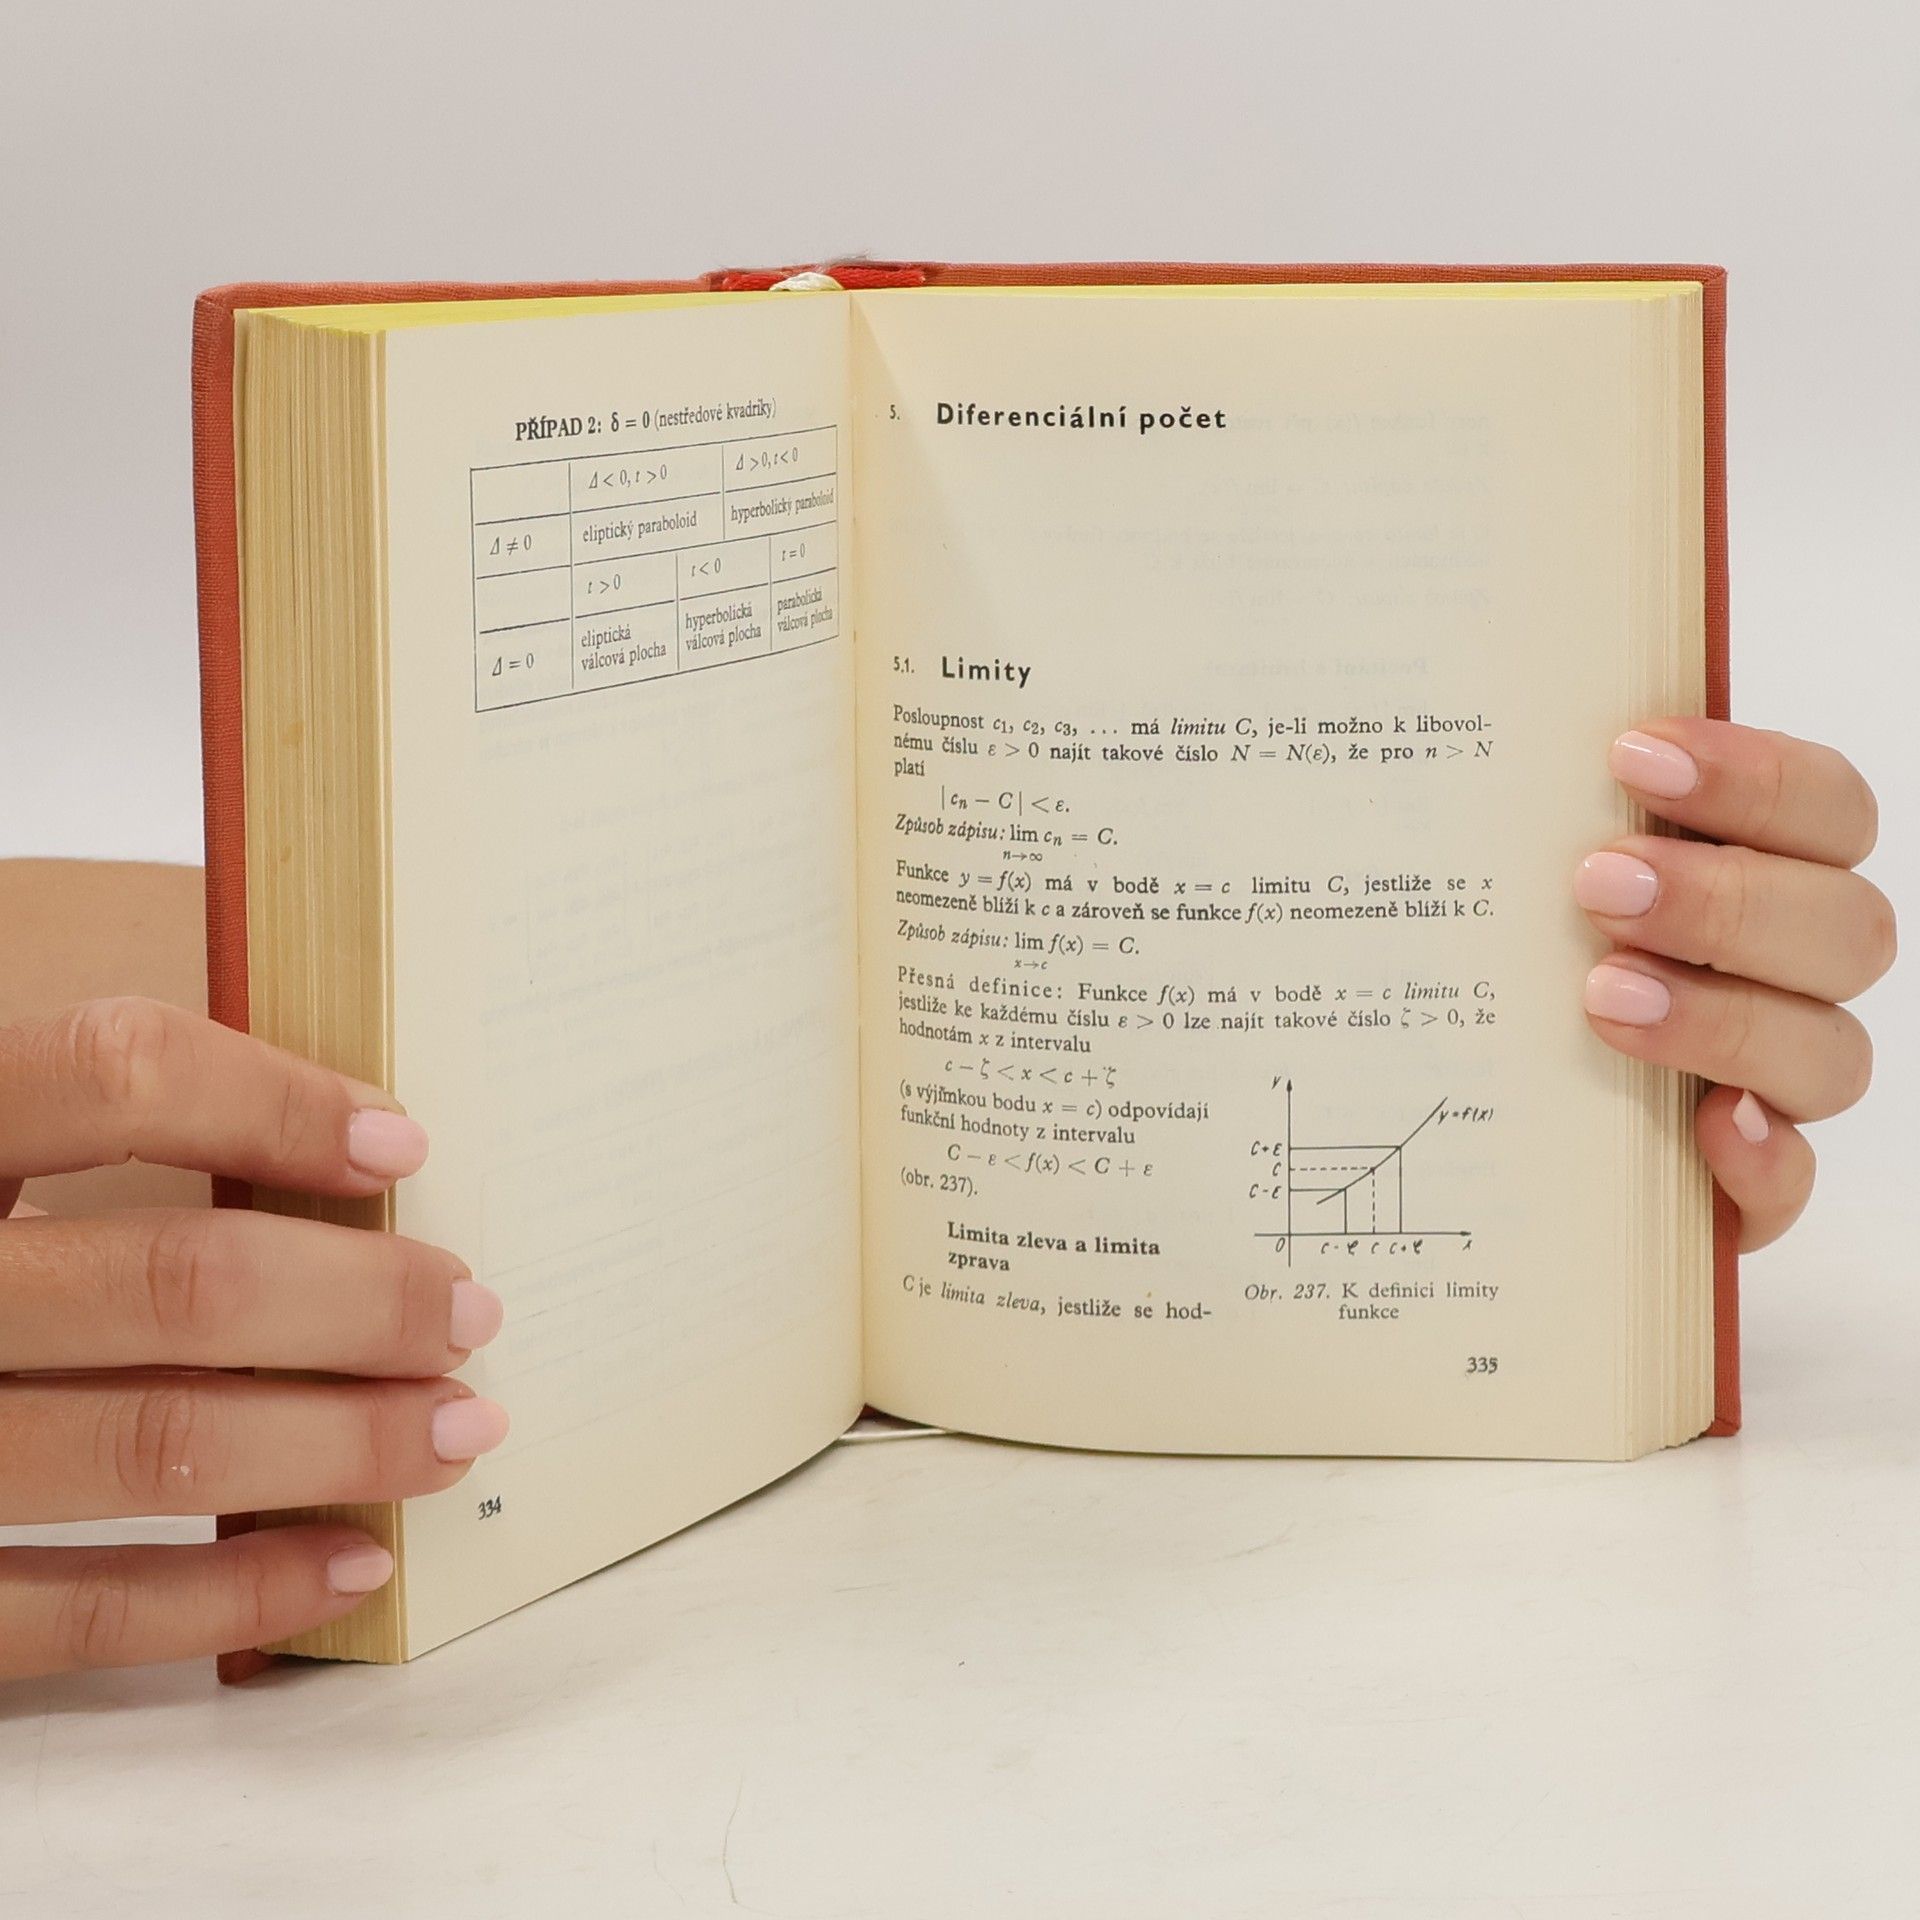 PŘÍPAD 2: δ = 0 (nestředové kvadriky)
Δ < 0, t > 0 Δ > 0, t < 0
Δ ≠ 0 eliptický paraboloid hyperbolický paraboloid
t > 0 t < 0 t = 0
Δ = 0 eliptická válcová plocha hyperbolická válcová plocha parabolická válcová plocha
334
5. Diferenciální počet
5.1. Limity
Posloupnost c₁, c₂, c₃, ... má limitu C, je-li možno k libovol-
nému číslu ε > 0 najít takové číslo N = N(ε), že pro n > N
platí
|cₙ − C| < ε.
Způsob zápisu: lim cₙ = C.
n→∞
Funkce y = f(x) má v bodě x = c limitu C, jestliže se x
neomezeně blíží k c a zároveň se funkce f(x) neomezeně blíží k C.
Způsob zápisu: lim f(x) = C.
x→c
Přesná definice: Funkce f(x) má v bodě x = c limitu C,
jestliže ke každému číslu ε > 0 lze najít takové číslo ζ > 0, že
hodnotám x z intervalu
c − ζ < x < c + ζ
(s výjimkou bodu x = c) odpovídají
funkční hodnoty z intervalu
C − ε < f(x) < C + ε
(obr. 237).
Limita zleva a limita
zprava
C je limita zleva, jestliže se hod-
y
y=f(x)
C+ε
C
C-ε
0 c c x
Obr. 237. K definici limity
funkce
335